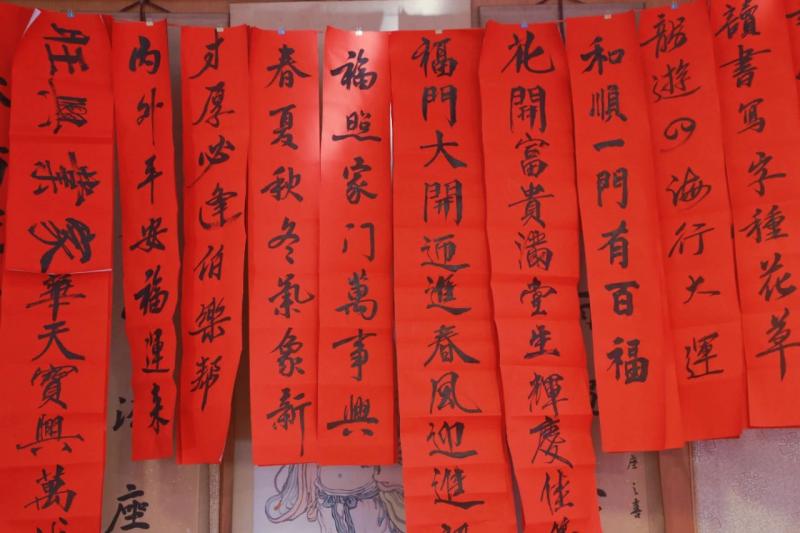 讀書写字種花草
龍遊四海行大運
和順一門有百福
花開富貴滿堂生輝慶佳
福門大開迎進春風迎進
福照家门萬事興
春夏秋冬氣象新
才厚必逢伯樂帮
内外平安福運来
家業興旺
華天寶興萬
座之喜
座